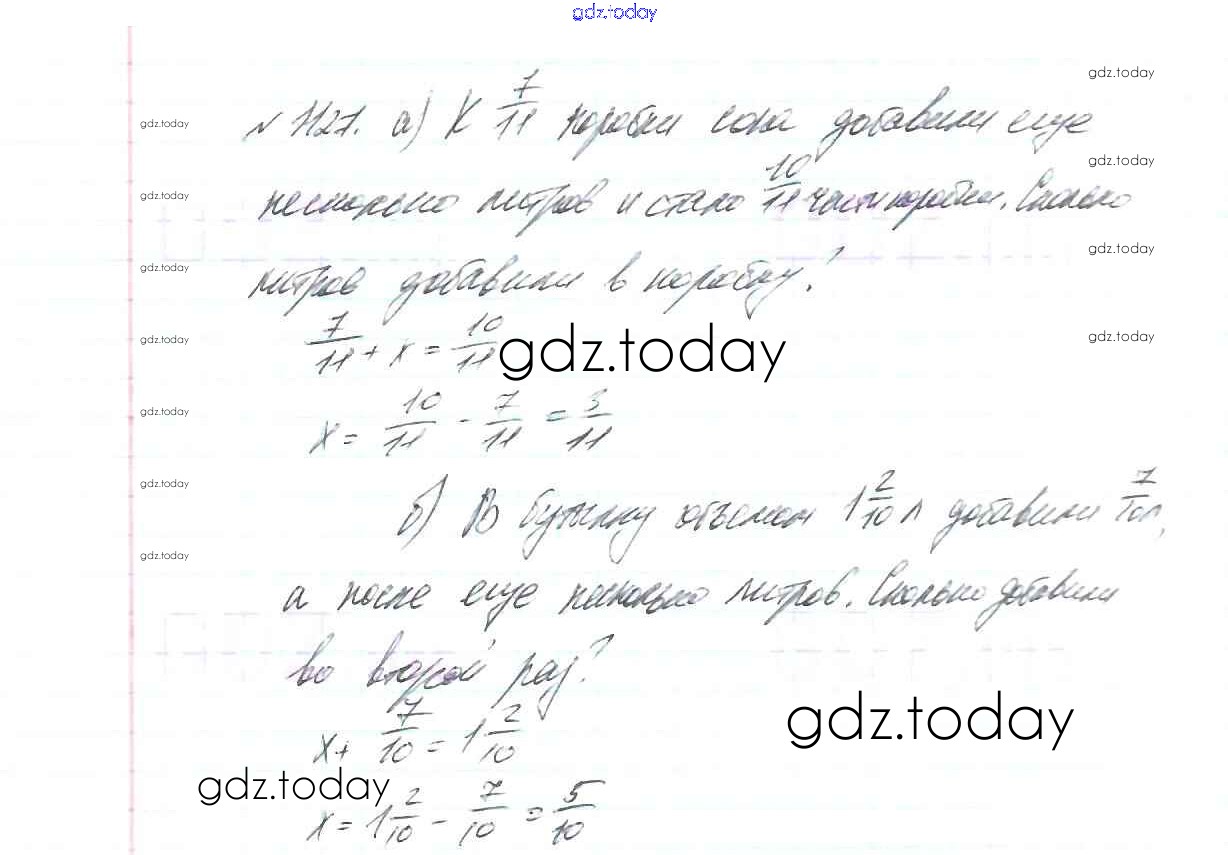 gdz.today
gdz.today
№ 1127. а) К 7/11 коробки сока добавили еще
gdz.today
gdz.today
несколько литров и стало 10/11 части коробки. Сколько
gdz.today
gdz.today
литров добавили в коробку?
gdz.today
gdz.today
7/11 + x = 10/11
gdz.today
gdz.today
gdz.today
x = 10/11 - 7/11 = 3/11
gdz.today
gdz.today
б) В бутылку объемом 1 2/10 л добавили 7/10 л,
gdz.today
а после еще несколько литров. Сколько добавили
во второй раз?
x + 7/10 = 1 2/10
gdz.today
gdz.today
x = 1 2/10 - 7/10 = 5/10